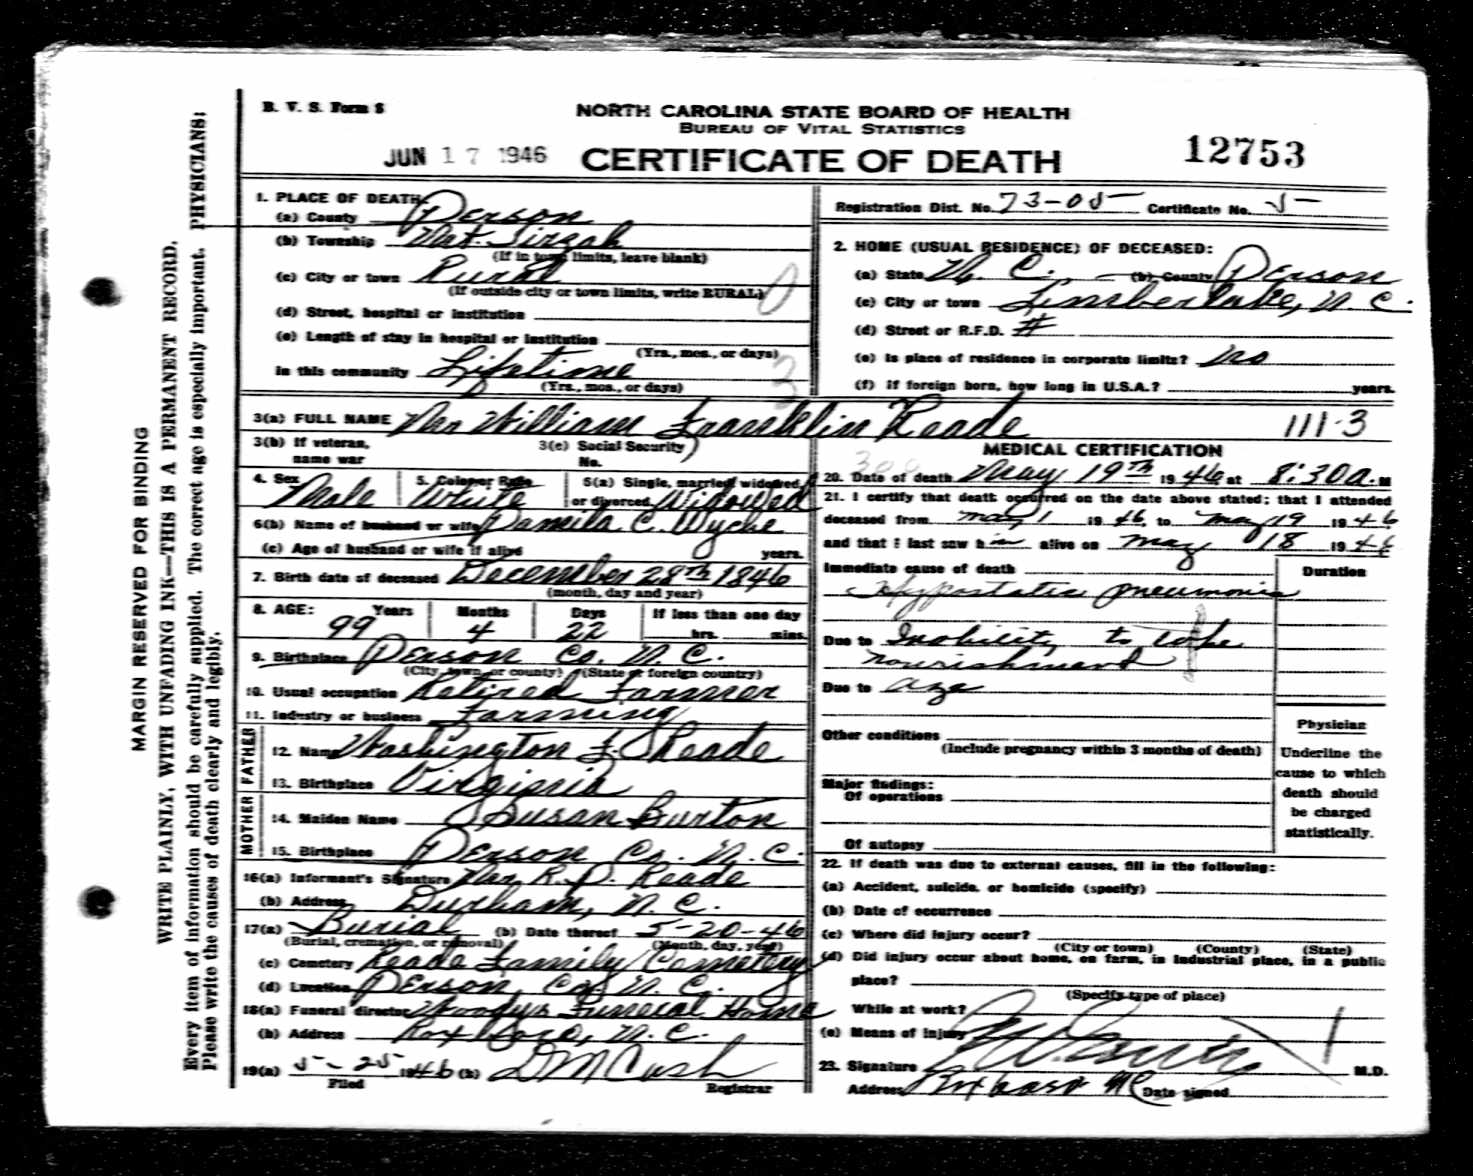 B. V. S. Form 8
NORTH CAROLINA STATE BOARD OF HEALTH
BUREAU OF VITAL STATISTICS
JUN 17 1946 CERTIFICATE OF DEATH 12753
MARGIN RESERVED FOR BINDING
WRITE PLAINLY, WITH UNFADING INK—THIS IS A PERMANENT RECORD.
Every item of information should be carefully supplied. The correct age is especially important. PHYSICIANS:
Please write the causes of death clearly and legibly.
1. PLACE OF DEATH:
(a) County Person
(b) Township Mt. Tirzah
(If in town limits, leave blank)
(c) City or town Rural
(If outside city or town limits, write RURAL)
(d) Street, hospital or institution
(e) Length of stay in hospital or institution
(Yrs., mos., or days)
In this community Lifetime
(Yrs., mos., or days)
Registration Dist. No. 73-05 Certificate No. 5
2. HOME (USUAL RESIDENCE) OF DECEASED:
(a) State N. C. (b) County Person
(c) City or town Timberlake, N.C.
(d) Street or R.F.D. #
(e) Is place of residence in corporate limits? No
(f) If foreign born, how long in U.S.A.? years.
3(a) FULL NAME Mr William Franklin Reade 111-3
3(b) If veteran, name war
3(c) Social Security No.
4. Sex Male 5. Color or Race White 5(a) Single, married, widowed, or divorced Widowed
6(b) Name of husband or wife Pamila C. Wyche
(c) Age of husband or wife if alive years.
7. Birth date of deceased December 28th 1846
(month, day and year)
8. AGE: Years Months Days If less than one day
99 4 22 hrs. mins.
9. Birthplace Person Co. N.C.
(City, town, or county) (State or foreign country)
10. Usual occupation Retired Farmer
11. Industry or business Farming
FATHER
12. Name Washington F. Reade
13. Birthplace Virginia
MOTHER
14. Maiden Name Susan Burton
15. Birthplace Person Co. N.C.
16(a) Informant's Signature Mr R. P. Reade
(b) Address Durham, N.C.
17(a) Burial (b) Date thereof 5-20-46
(Burial, cremation, or removal) (Month, day, year)
(c) Cemetery Reade Family Cemetery
(d) Location Person Co. N.C.
18(a) Funeral director Woody's Funeral Home
(b) Address Roxboro, N.C.
19(a) 5-25 1946 (b) D M Cash
Filed Registrar
MEDICAL CERTIFICATION
20. Date of death May 19th 1946 at 8:30a.M
21. I certify that death occurred on the date above stated; that I attended
deceased from May 1 1946, to May 19 1946
and that I last saw him alive on May 18 1946
Immediate cause of death Duration
Hypostatic pneumonia
Due to Inability to take
nourishment
Due to age
Other conditions
(Include pregnancy within 3 months of death)
Major findings:
Of operations
Of autopsy
Physician
Underline the
cause to which
death should
be charged
statistically.
22. If death was due to external causes, fill in the following:
(a) Accident, suicide, or homicide (specify)
(b) Date of occurrence
(c) Where did injury occur?
(City or town) (County) (State)
(d) Did injury occur about home, on farm, in industrial place, in a public
place?
(Specify type of place)
While at work?
(e) Means of injury
23. Signature M.D.
Address Roxboro NC Date signed